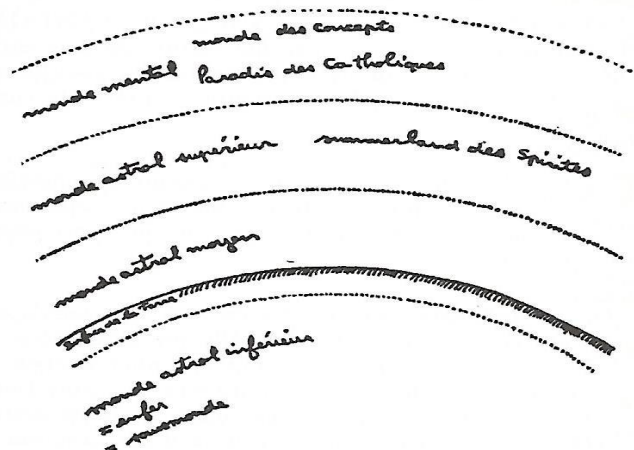 monde des concepts
monde mental Paradis des Catholiques
monde astral supérieur summerland des Spirites
monde astral moyen
surface de la Terre
monde astral inférieur
= enfer
= sousmonde